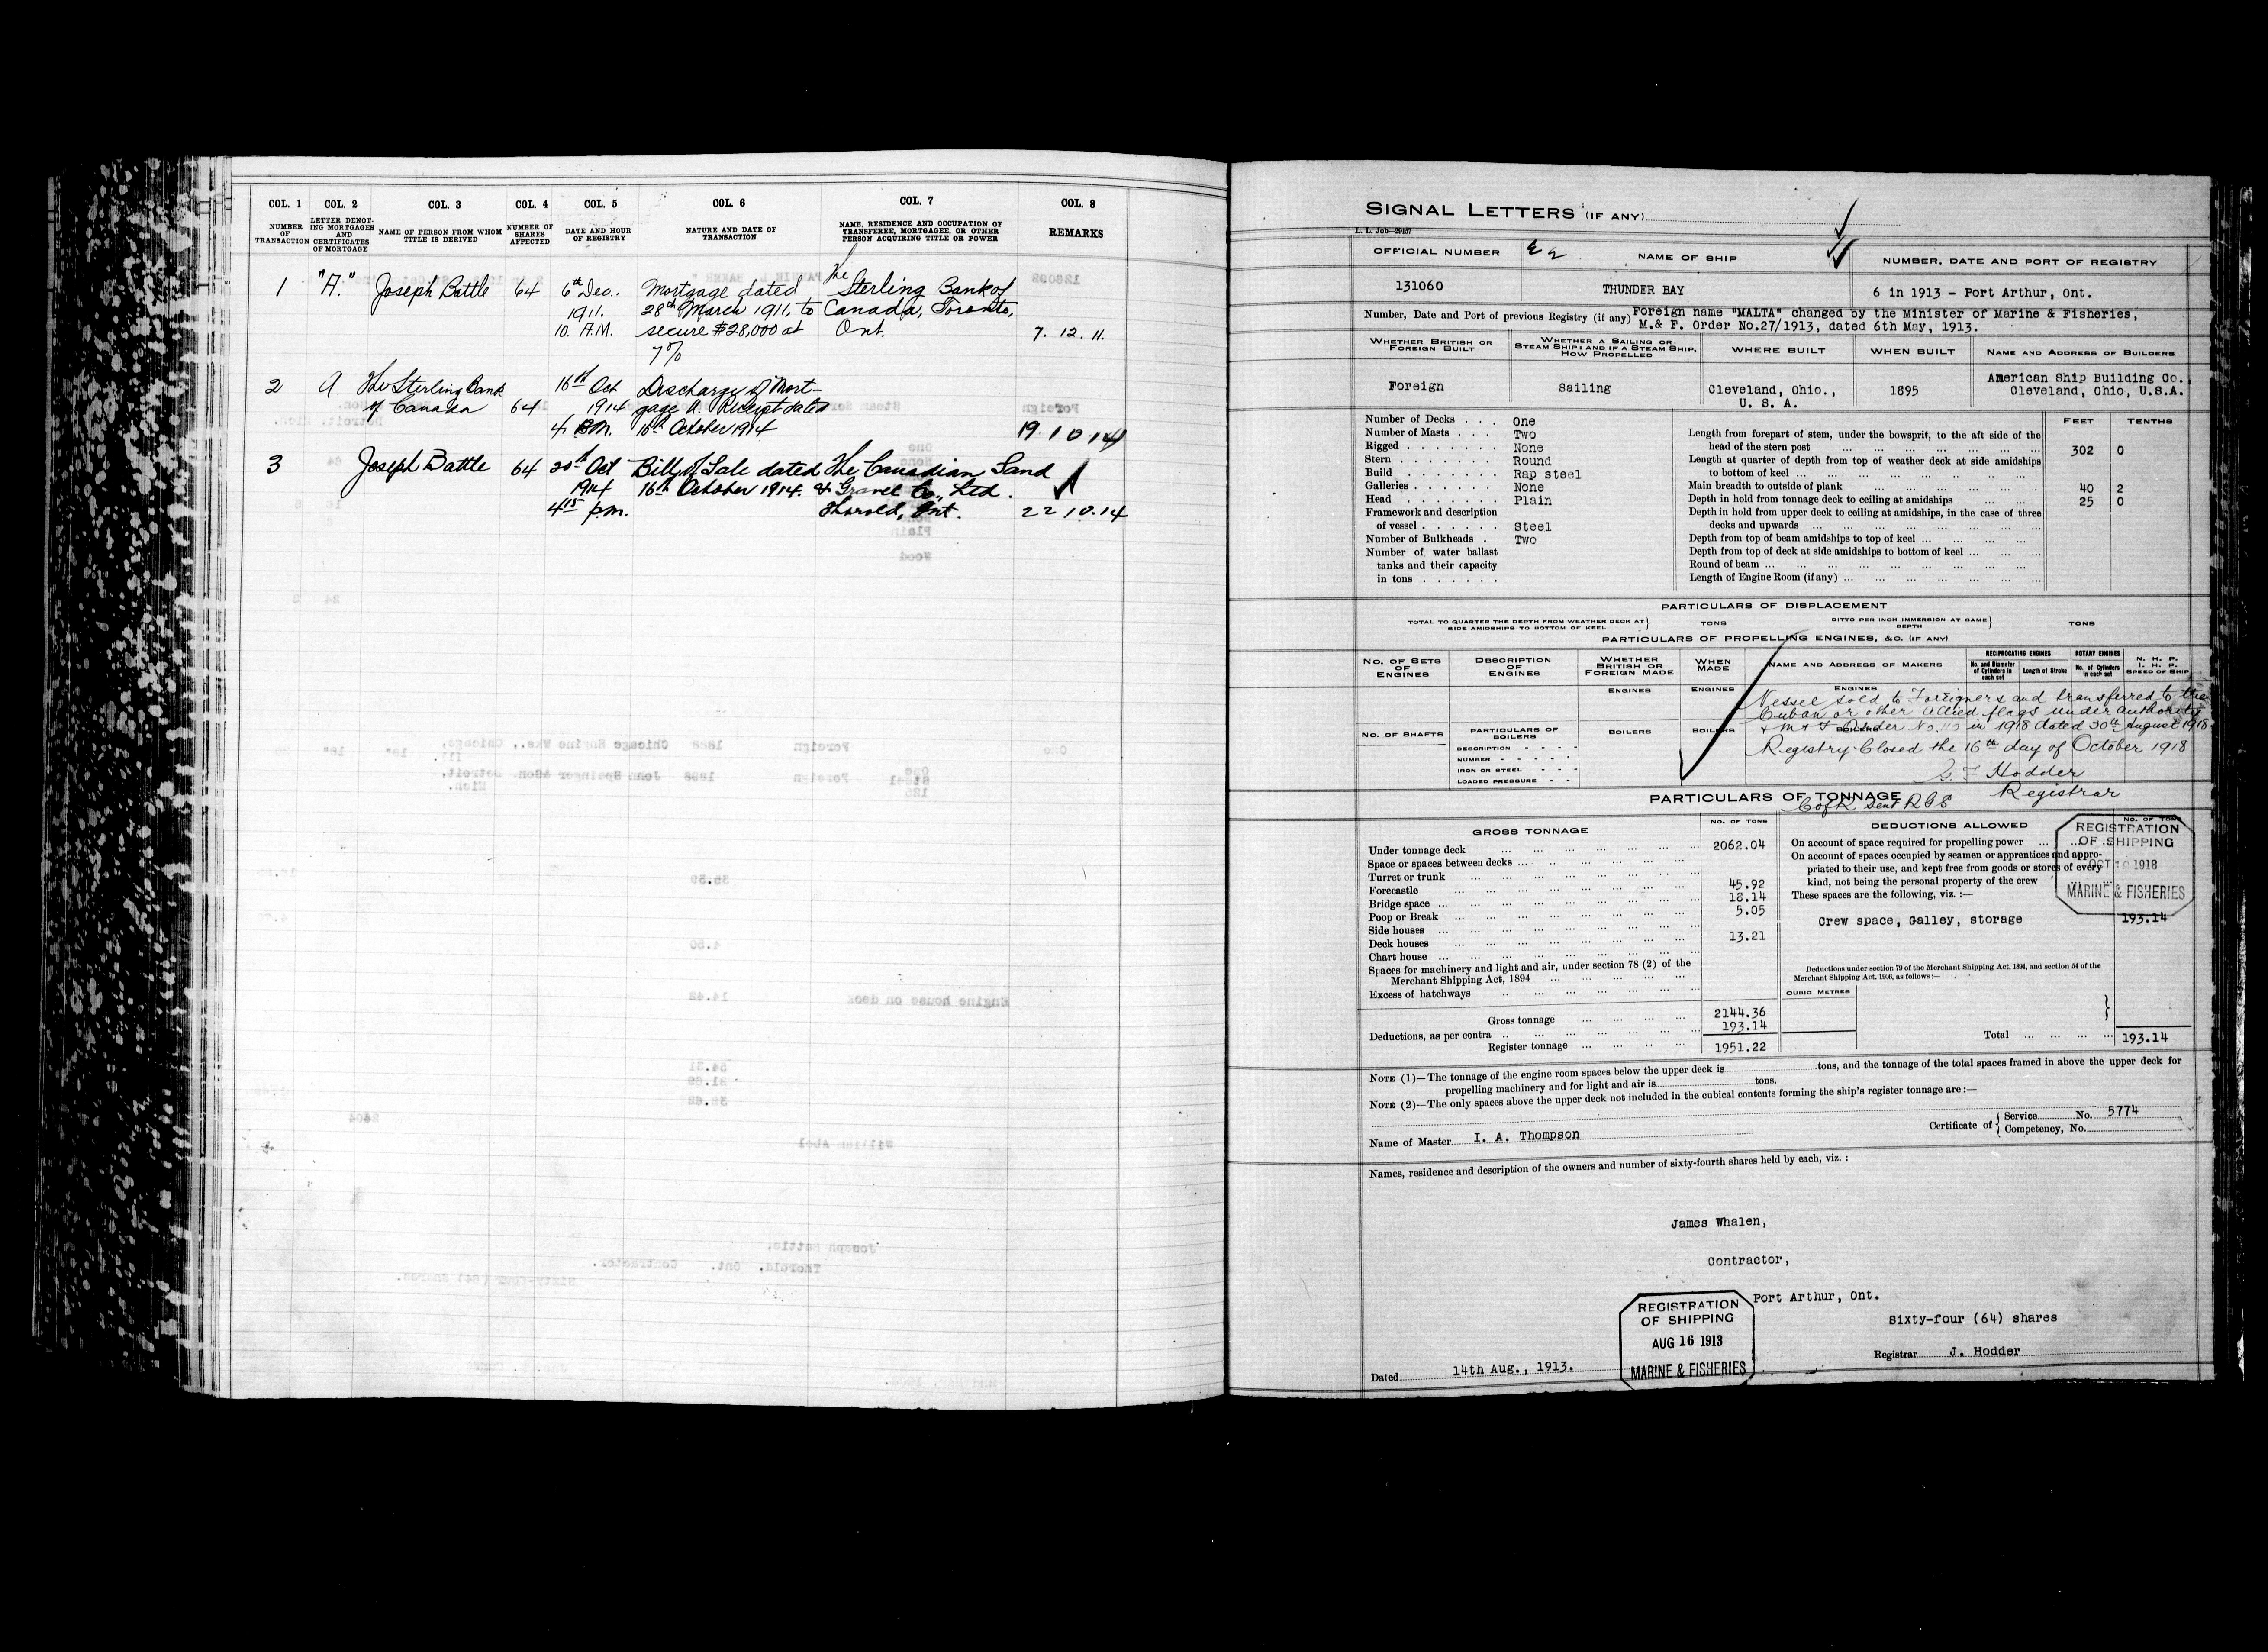 COL. 1 COL. 2 COL. 3 COL. 4 COL. 5 COL. 6 COL. 7 COL. 8
NUMBER OF TRANSACTION
LETTER DENOTING MORTGAGES AND CERTIFICATES OF MORTGAGE
NAME OF PERSON FROM WHOM TITLE IS DERIVED
NUMBER OF SHARES AFFECTED
DATE AND HOUR OF REGISTRY
NATURE AND DATE OF TRANSACTION
NAME, RESIDENCE AND OCCUPATION OF TRANSFEREE, MORTGAGEE, OR OTHER PERSON ACQUIRING TITLE OR POWER
REMARKS
The
1 "A." Joseph Battle 64 6th Dec. Mortgage dated Sterling Bank of
1911. 28th March 1911, to Canada, Toronto,
10. A.M. secure $28,000 at Ont. 7. 12. 11.
7%
2 A. The Sterling Bank 16th Oct Discharge of Mort-
of Canada 64 1914 gage A. Receipt dated
4 P.M. 16th October 1914 19.10.14
3 Joseph Battle 64 20th Oct Bill of Sale dated The Canadian Sand
1914 16th October 1914. & Gravel Co., Ltd.
4 15 p.m. Thorold, Ont. 22.10.14
SIGNAL LETTERS (IF ANY)
L. L. Job—29157
OFFICIAL NUMBER NAME OF SHIP NUMBER, DATE AND PORT OF REGISTRY
131060 THUNDER BAY 6 in 1913 - Port Arthur, Ont.
Number, Date and Port of previous Registry (if any) Foreign name "MALTA" changed by the Minister of Marine & Fisheries,
M.& F. Order No.27/1913, dated 6th May, 1913.
WHETHER BRITISH OR FOREIGN BUILT
WHETHER A SAILING OR STEAM SHIP; AND IF A STEAM SHIP, HOW PROPELLED
WHERE BUILT WHEN BUILT NAME AND ADDRESS OF BUILDERS
Foreign Sailing Cleveland, Ohio., U. S. A. 1895 American Ship Building Co., Cleveland, Ohio, U.S.A.
FEET TENTHS
Number of Decks . . . One
Number of Masts . . . Two
Rigged . . . None
Stern . . . Round
Build . . . Rap steel
Galleries . . . None
Head . . . Plain
Framework and description
of vessel . . . Steel
Number of Bulkheads . Two
Number of water ballast
tanks and their capacity
in tons . . .
Length from forepart of stem, under the bowsprit, to the aft side of the
head of the stern post 302 0
Length at quarter of depth from top of weather deck at side amidships
to bottom of keel
Main breadth to outside of plank 40 2
Depth in hold from tonnage deck to ceiling at amidships 25 0
Depth in hold from upper deck to ceiling at amidships, in the case of three
decks and upwards
Depth from top of beam amidships to top of keel
Depth from top of deck at side amidships to bottom of keel
Round of beam
Length of Engine Room (if any)
PARTICULARS OF DISPLACEMENT
TOTAL TO QUARTER THE DEPTH FROM WEATHER DECK AT SIDE AMIDSHIPS TO BOTTOM OF KEEL } TONS DITTO PER INCH IMMERSION AT SAME DEPTH } TONS
PARTICULARS OF PROPELLING ENGINES, &C. (IF ANY)
NO. OF SETS OF ENGINES
DESCRIPTION OF ENGINES
WHETHER BRITISH OR FOREIGN MADE
WHEN MADE
NAME AND ADDRESS OF MAKERS
RECIPROCATING ENGINES ROTARY ENGINES
No. and Diameter of Cylinders in each set Length of Stroke No. of Cylinders in each set
N. H. P. I. H. P. SPEED OF SHIP
ENGINES ENGINES ENGINES
Vessel sold to Foreigners and transferred to the
Cuban or other Allied flags under authority
M & F Order No. 110 in 1918 dated 30th August 1918
Registry Closed the 16th day of October 1918
Hodder
Registrar
NO. OF SHAFTS PARTICULARS OF BOILERS BOILERS BOILERS BOILERS
DESCRIPTION
NUMBER
IRON OR STEEL
LOADED PRESSURE
PARTICULARS OF TONNAGE
C of R sent RGS
GROSS TONNAGE NO. OF TONS DEDUCTIONS ALLOWED NO. OF TONS
Under tonnage deck 2062.04
Space or spaces between decks
Turret or trunk
Forecastle 45.92
Bridge space 18.14
Poop or Break 5.05
Side houses
Deck houses 13.21
Chart house
Spaces for machinery and light and air, under section 78 (2) of the
Merchant Shipping Act, 1894
Excess of hatchways
Gross tonnage 2144.36
Deductions, as per contra 193.14
Register tonnage 1951.22
On account of space required for propelling power
On account of spaces occupied by seamen or apprentices and appro-
priated to their use, and kept free from goods or stores of every
kind, not being the personal property of the crew
These spaces are the following, viz. :—
Crew space, Galley, storage 193.14
REGISTRATION
OF SHIPPING
OCT 1918
MARINE & FISHERIES
Deductions under section 79 of the Merchant Shipping Act, 1894, and section 54 of the
Merchant Shipping Act, 1906, as follows :—
CUBIC METRES
Total 193.14
NOTE (1)—The tonnage of the engine room spaces below the upper deck is tons, and the tonnage of the total spaces framed in above the upper deck for
propelling machinery and for light and air is tons.
NOTE (2)—The only spaces above the upper deck not included in the cubical contents forming the ship's register tonnage are :—
Name of Master I. A. Thompson
Certificate of { Service No. 5774
Competency, No.
Names, residence and description of the owners and number of sixty-fourth shares held by each, viz. :
James Whalen,
Contractor,
Port Arthur, Ont.
Sixty-four (64) shares
REGISTRATION
OF SHIPPING
AUG 16 1913
MARINE & FISHERIES
Dated 14th Aug., 1913.
Registrar J. Hodder